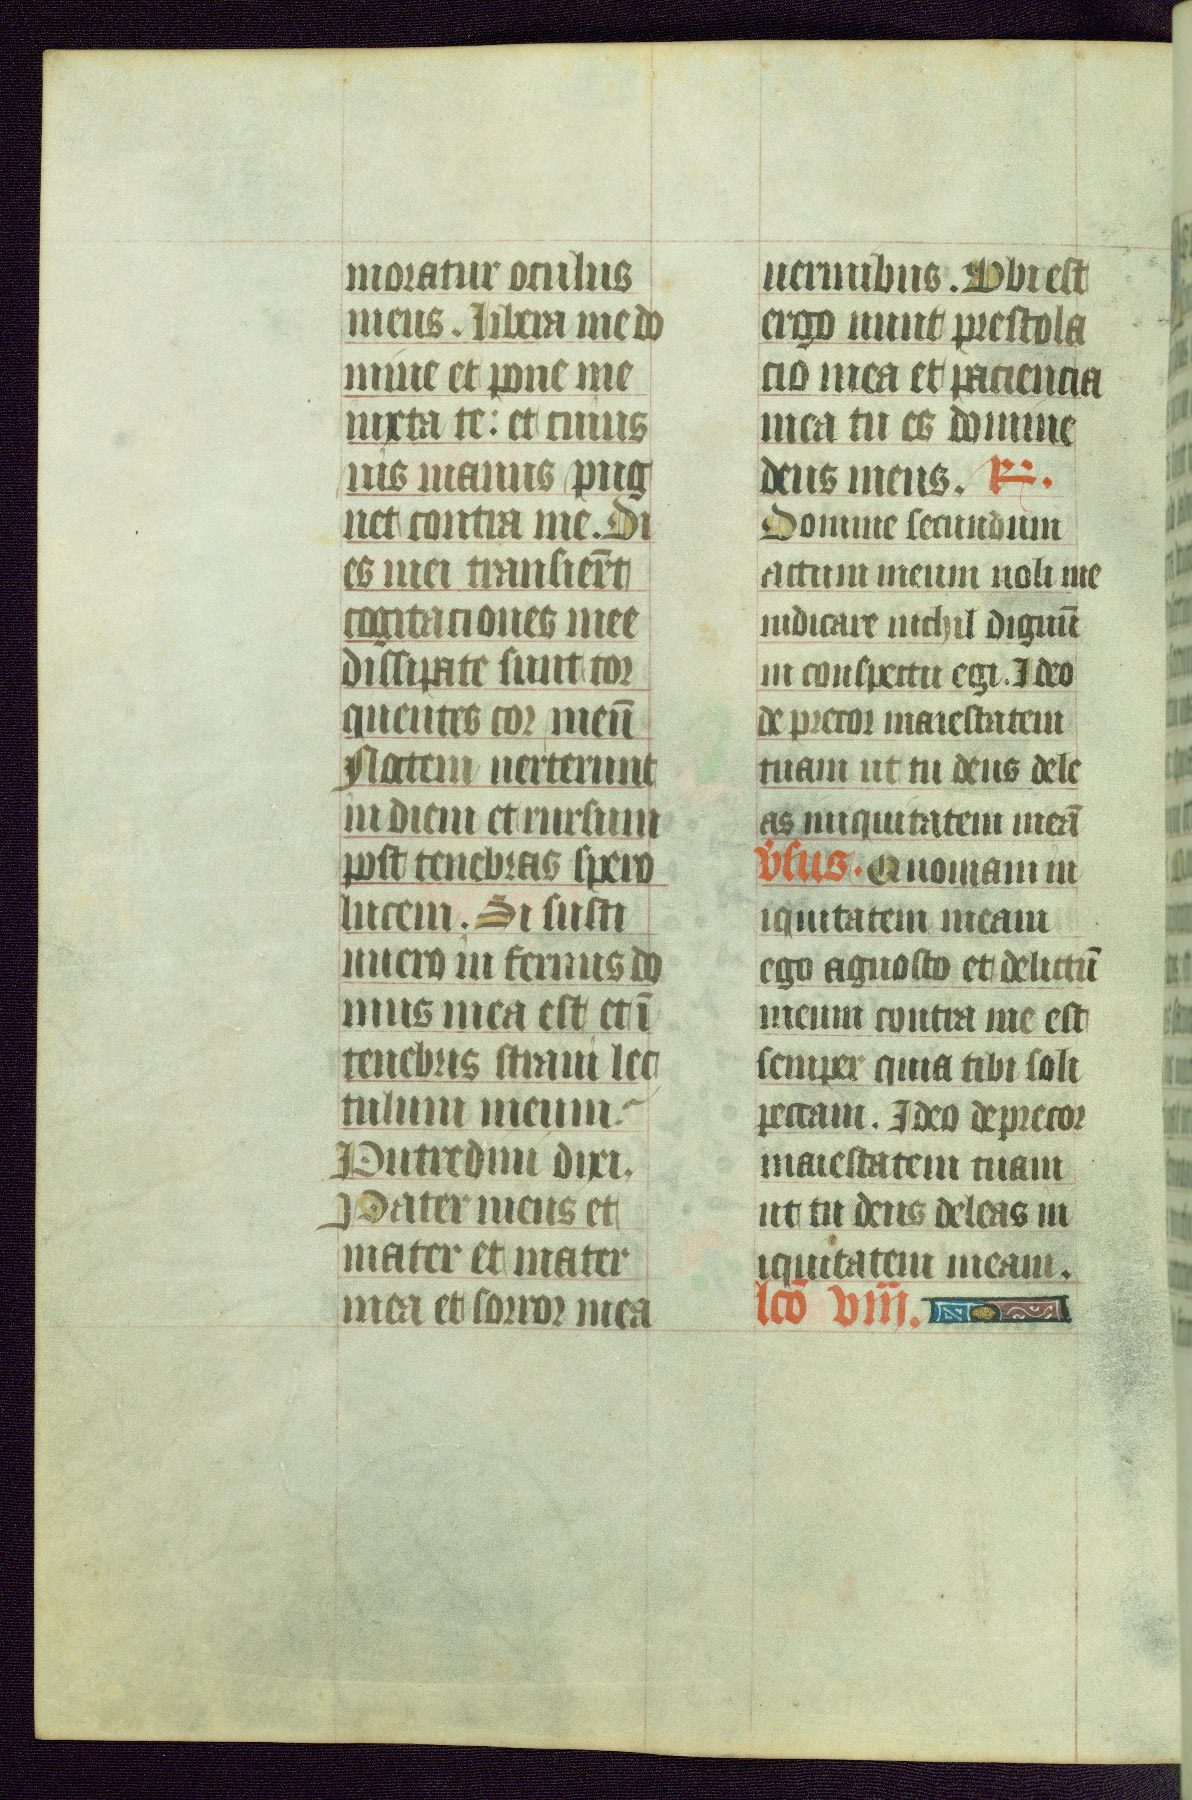 moratur oculus
meus. Libera me do
mine et pone me
iuxta te: et cuius
uis manus pug
net contra me. Di
es mei transier̄t
cogitaciones mee
dissipate sunt tor
quentes cor meū
Noctem uerterunt
in diem et rursum
post tenebras spero
lucem. Si susti
nuero in fernus do
mus mea est et ī
tenebris straui lec
tulum meum.
Putredini dixi.
Pater meus et
mater et mater
mea et sorror mea
uermibus. Vbi est
ergo nunc prestola
cio mea et paciencia
mea tu es domine
deus meus. R̄.
Domine secundum
actum meum noli me
iudicare nichil dignū
in conspectu egi. Ideo
de precor maiestatem
tuam ut tu deus dele
as iniquitatem meā
v̄sus. Quoniam in
iquitatem meam
ego agnosco et delictū
meum contra me est
semper quia tibi soli
peccaui. Ideo deprecor
maiestatem tuam
ut tu deus deleas in
iquitatem meam.
lco̅ viii̅.